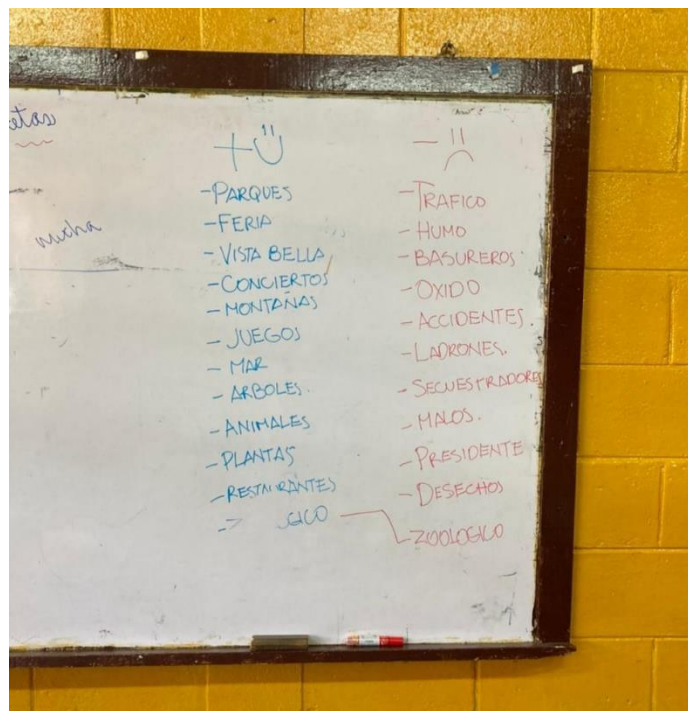 etas
mucha
+
- PARQUES
- FERIA
- VISTA BELLA
- CONCIERTOS
- MONTAÑAS
- JUEGOS
- MAR
- ARBOLES.
- ANIMALES
- PLANTAS
- RESTAURANTES
- GICO
-
- TRAFICO
- HUMO
- BASUREROS
- OXIDO
- ACCIDENTES.
- LADRONES.
- SECUESTRADORES
- MALOS.
- PRESIDENTE
- DESECHOS
- ZOOLOGICO